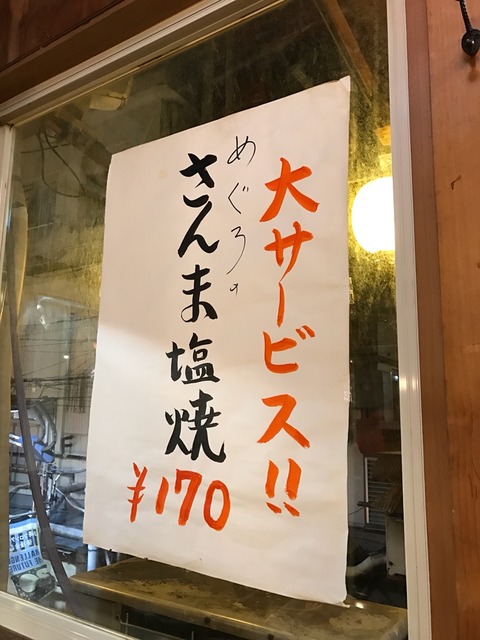 大サービス!!
めぐろの
さんま塩焼
¥170